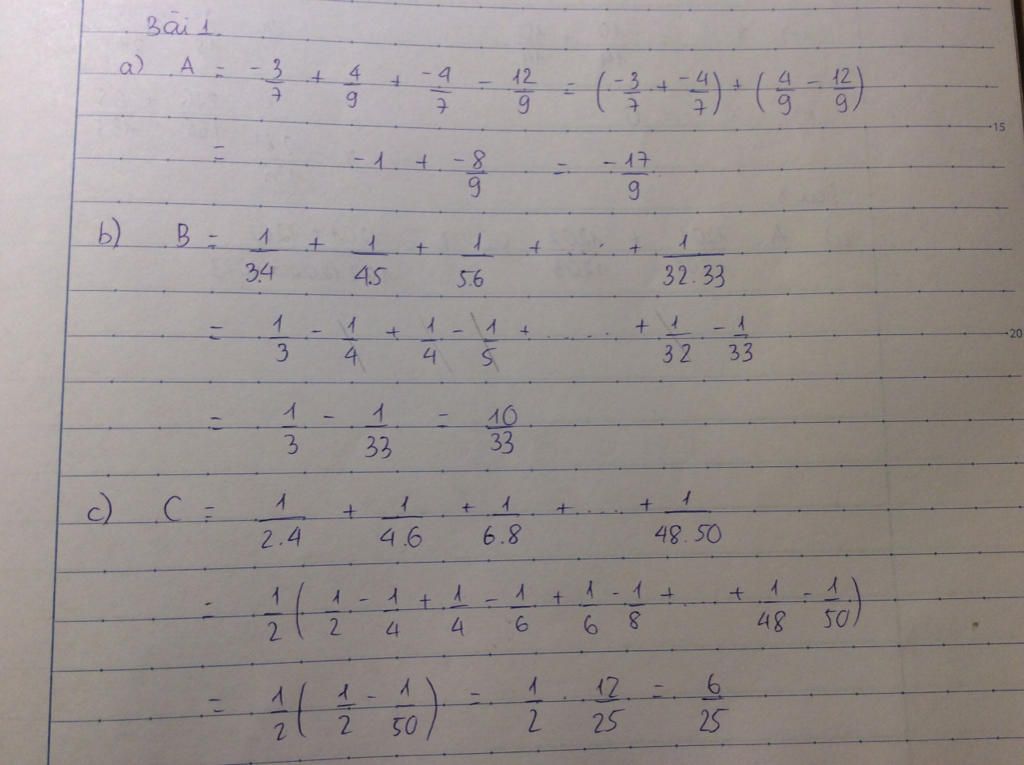 Bài 1.
a) A = -3/7 + 4/9 + -4/7 - 12/9 = (-3/7 + -4/7) + (4/9 - 12/9)
= -1 + -8/9 = -17/9
b) B = 1/3.4 + 1/4.5 + 1/5.6 + ... + 1/32.33
= 1/3 - 1/4 + 1/4 - 1/5 + ..... + 1/32 - 1/33
= 1/3 - 1/33 = 10/33
c) C = 1/2.4 + 1/4.6 + 1/6.8 + .... + 1/48.50
= 1/2 (1/2 - 1/4 + 1/4 - 1/6 + 1/6 - 1/8 + .... + 1/48 - 1/50)
= 1/2 (1/2 - 1/50) = 1/2 . 12/25 = 6/25
15
20